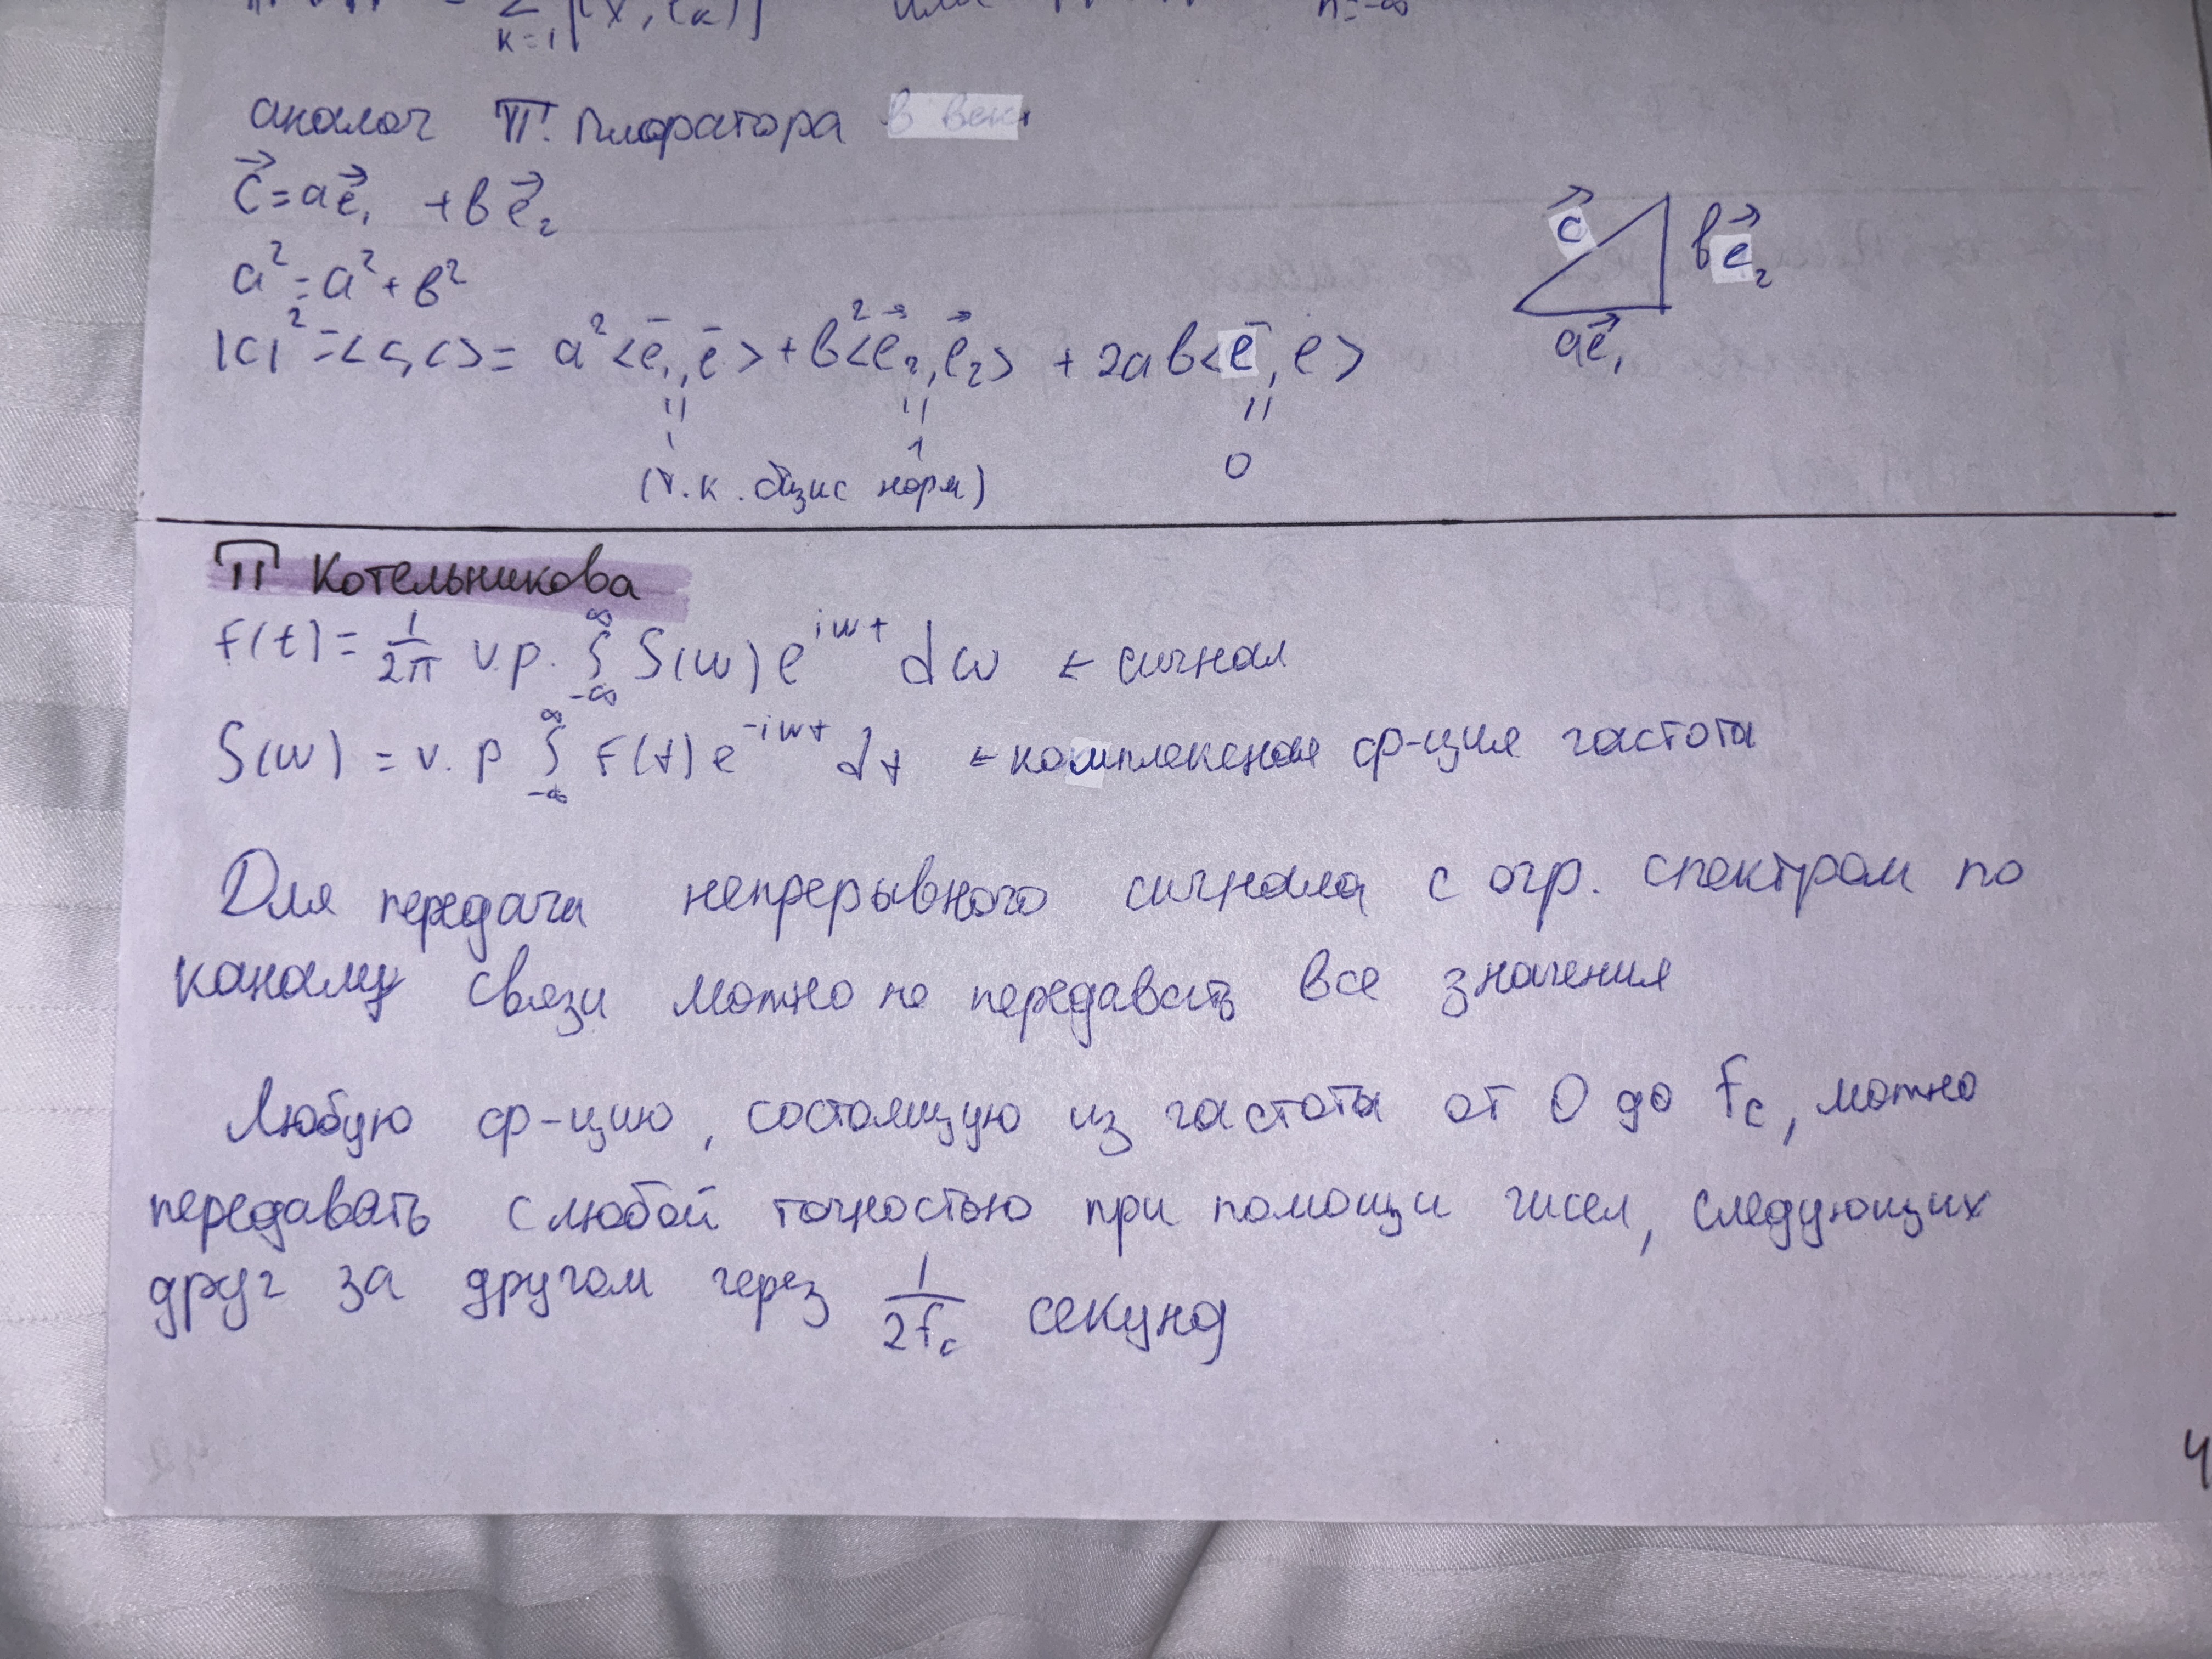 K=1
n=-∞
аналог П. Пифагора
c⃗=ae⃗₁ +вe⃗₂
a²=a²+в²
|c|²=<c,c>= a²<e₁,e>+в²<e⃗₂,e⃗₂> + 2ав<e,e>
" " "
1 1 0
(т.к. базис норм)
c⃗
вe⃗₂
ae⃗₁
П Котельникова
F(t)= 1/2π v.p. ∫_{-∞}^{∞} S(w)e^{iwt} dw ← сигнал
S(w) = v.p ∫_{-∞}^{∞} F(t)e^{-iwt} dt ← комплексная ф-ция частоты
Для передачи непрерывного сигнала с огр. спектром по
каналу связи можно не передавать все значения
Любую ф-цию, состоящую из частоты от 0 до Fc, можно
передавать с любой точностью при помощи чисел, следующих
друг за другом через 1/2Fc секунд
4